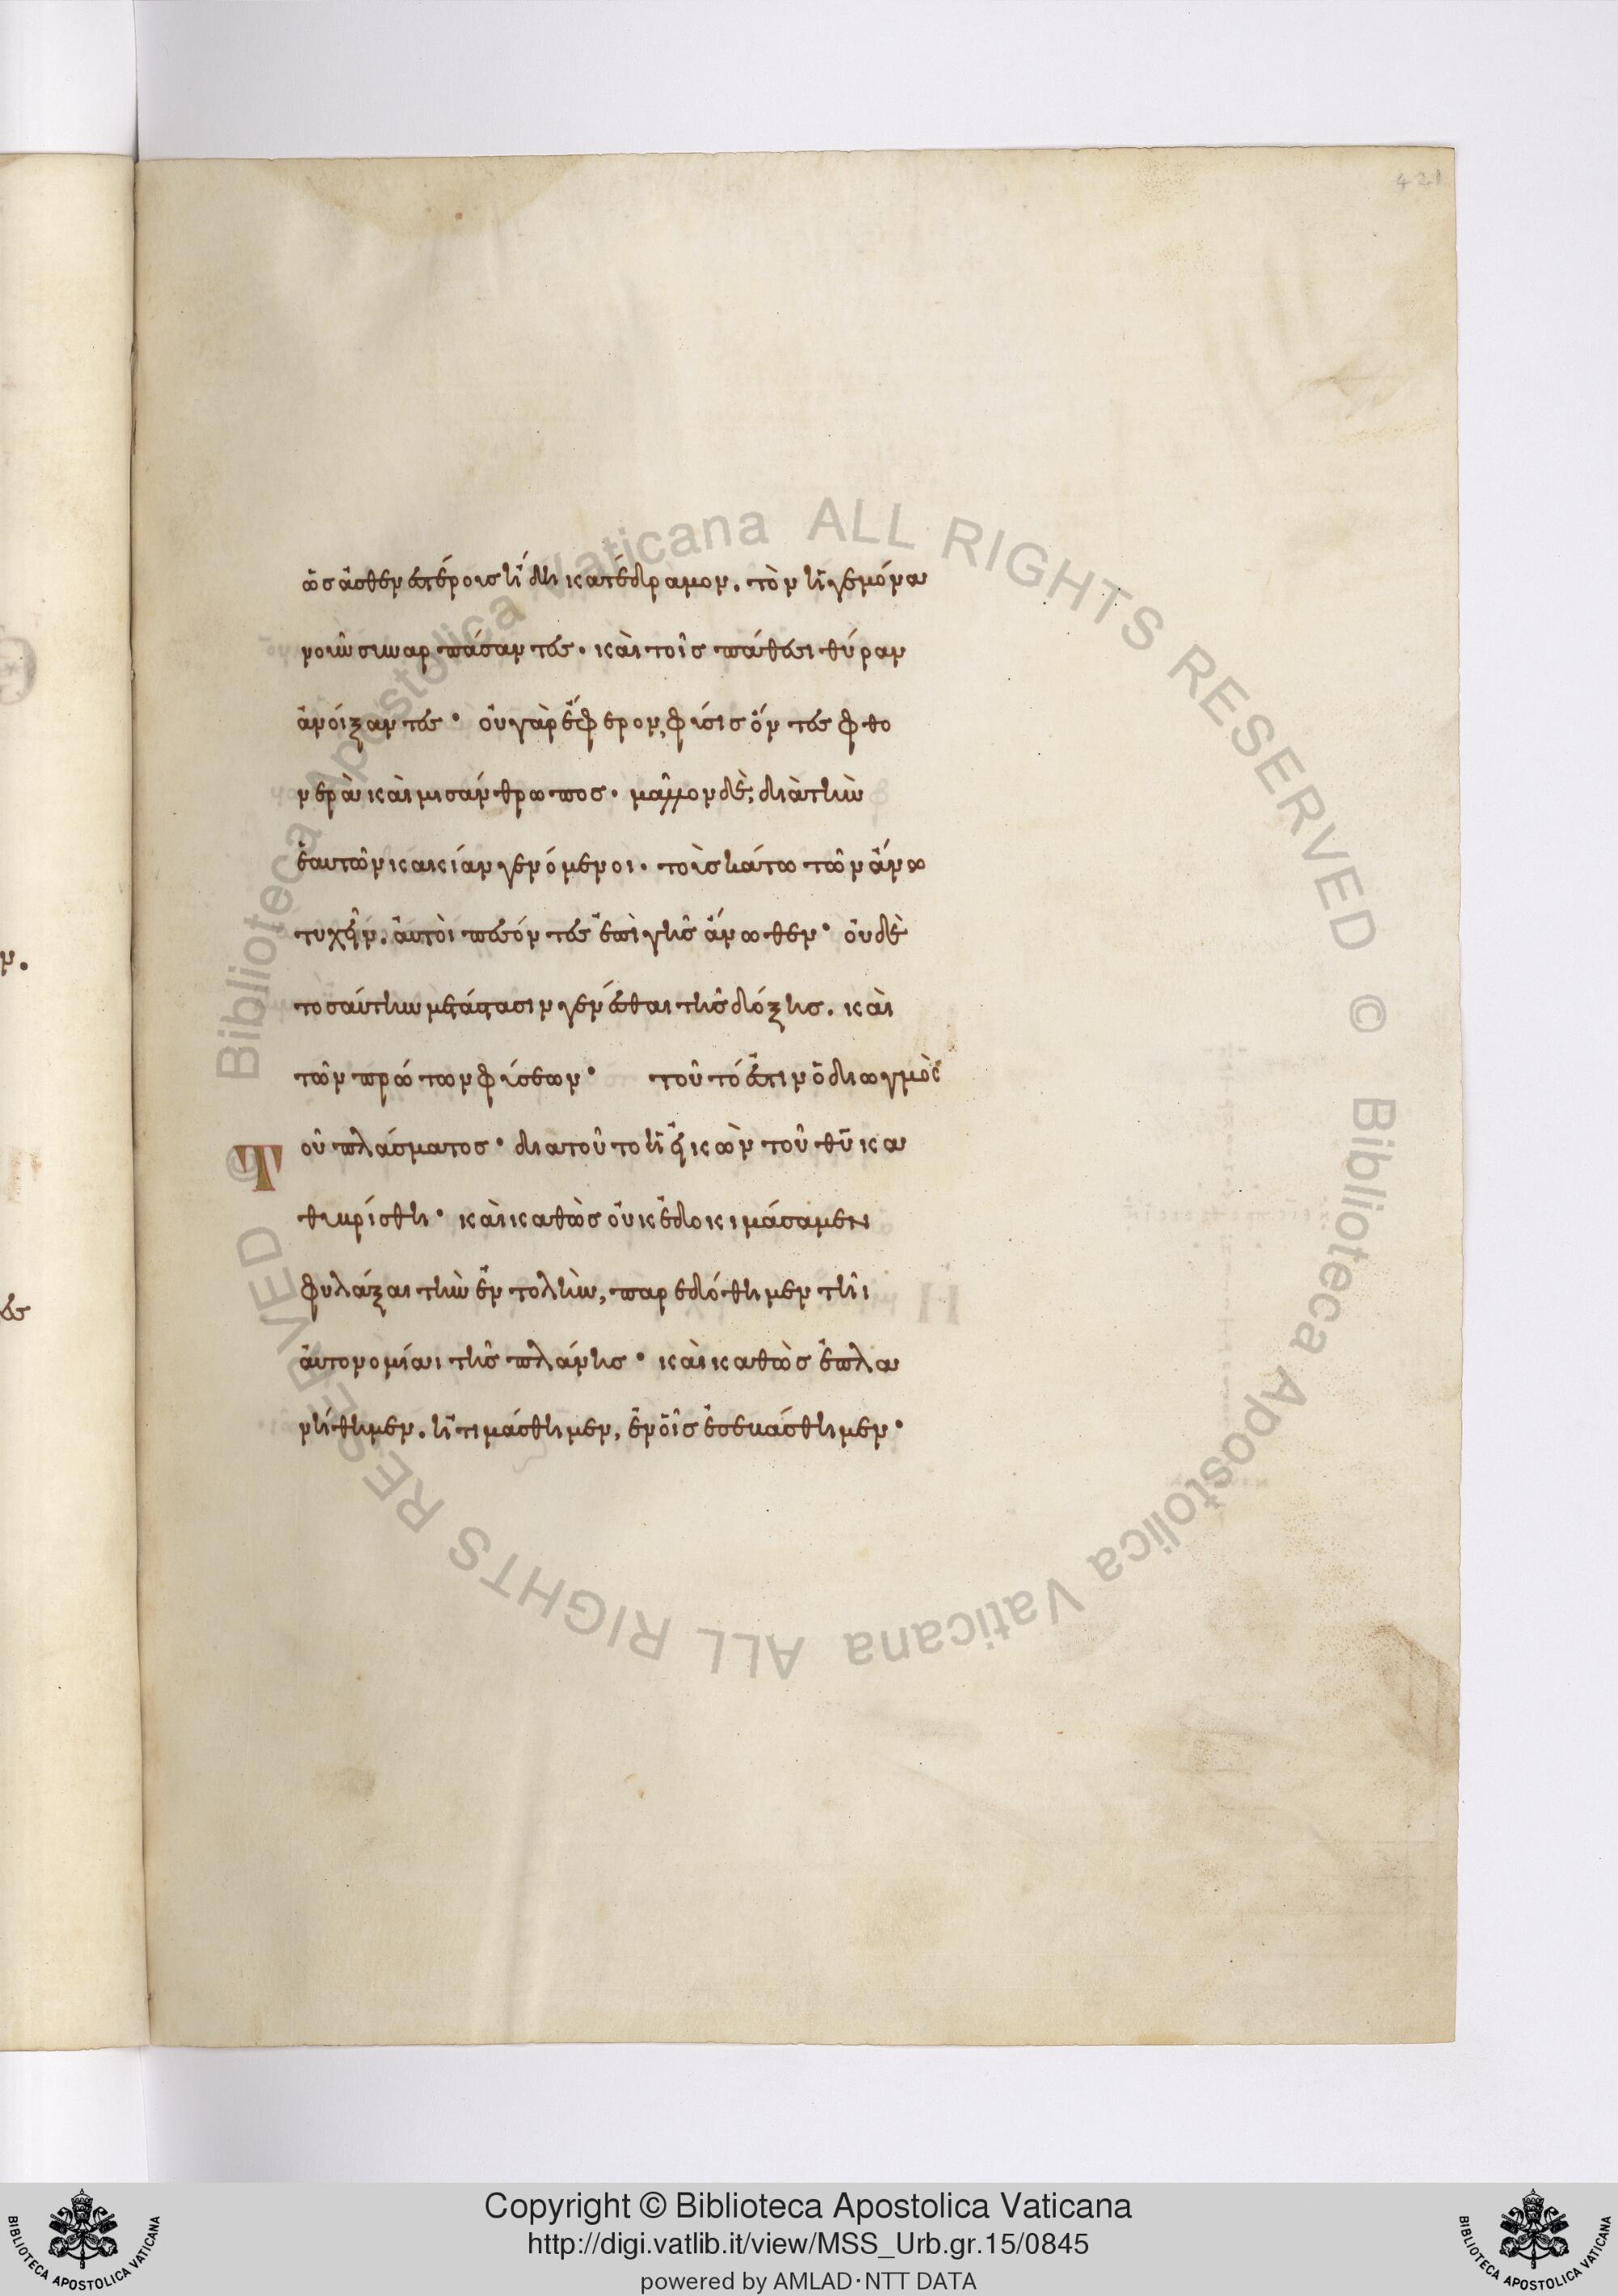 421
ὡς ἀσθενεστέροις ἤδη κατέδραμον. τὸν ἡγεμόνα
νοῦν συναρπάσαντες. καὶ τοῖς πάθεσι θύραν
ἀνοίξαντες· οὐ γὰρ ἔφερον, φύσις ὄντες φθο
νερὰ καὶ μισάνθρωπος. μᾶλλον δὲ, διὰ τὴν
ἑαυτῶν κακίαν γενόμενοι. τοὺς κάτω τῶν ἄνω
τυχεῖν. αὐτοὶ πεσόντες ἐπὶ γῆς ἄνωθεν· οὐδὲ
τοσαύτην μετάστασιν γενέσθαι τῆς δόξης. καὶ
τῶν πρώτων φύσεων· τοῦτό ἐστιν ὁ διωγμὸς
Τοῦ πλάσματος· διατοῦτο ἡ εἰκὼν τοῦ θῦ κα
θυβρίσθη· καὶ καθὼς οὐκ ἐδοκιμάσαμεν
φυλάξαι τὴν ἐντολὴν, παρεδόθημεν τῆι
αὐτονομίαι τῆς πλάνης· καὶ καθὼς ἐπλα
νήθημεν. ἠτιμάσθημεν, ἐν οἷς ἐσεβάσθημεν·
ν.
ες
Biblioteca Apostolica Vaticana ALL RIGHTS RESERVED ©
Biblioteca Apostolica Vaticana ALL RIGHTS RESERVED ©
BIBLIOTECA APOSTOLICA VATICANA
Copyright © Biblioteca Apostolica Vaticana
http://digi.vatlib.it/view/MSS_Urb.gr.15/0845
powered by AMLAD·NTT DATA
BIBLIOTECA APOSTOLICA VATICANA